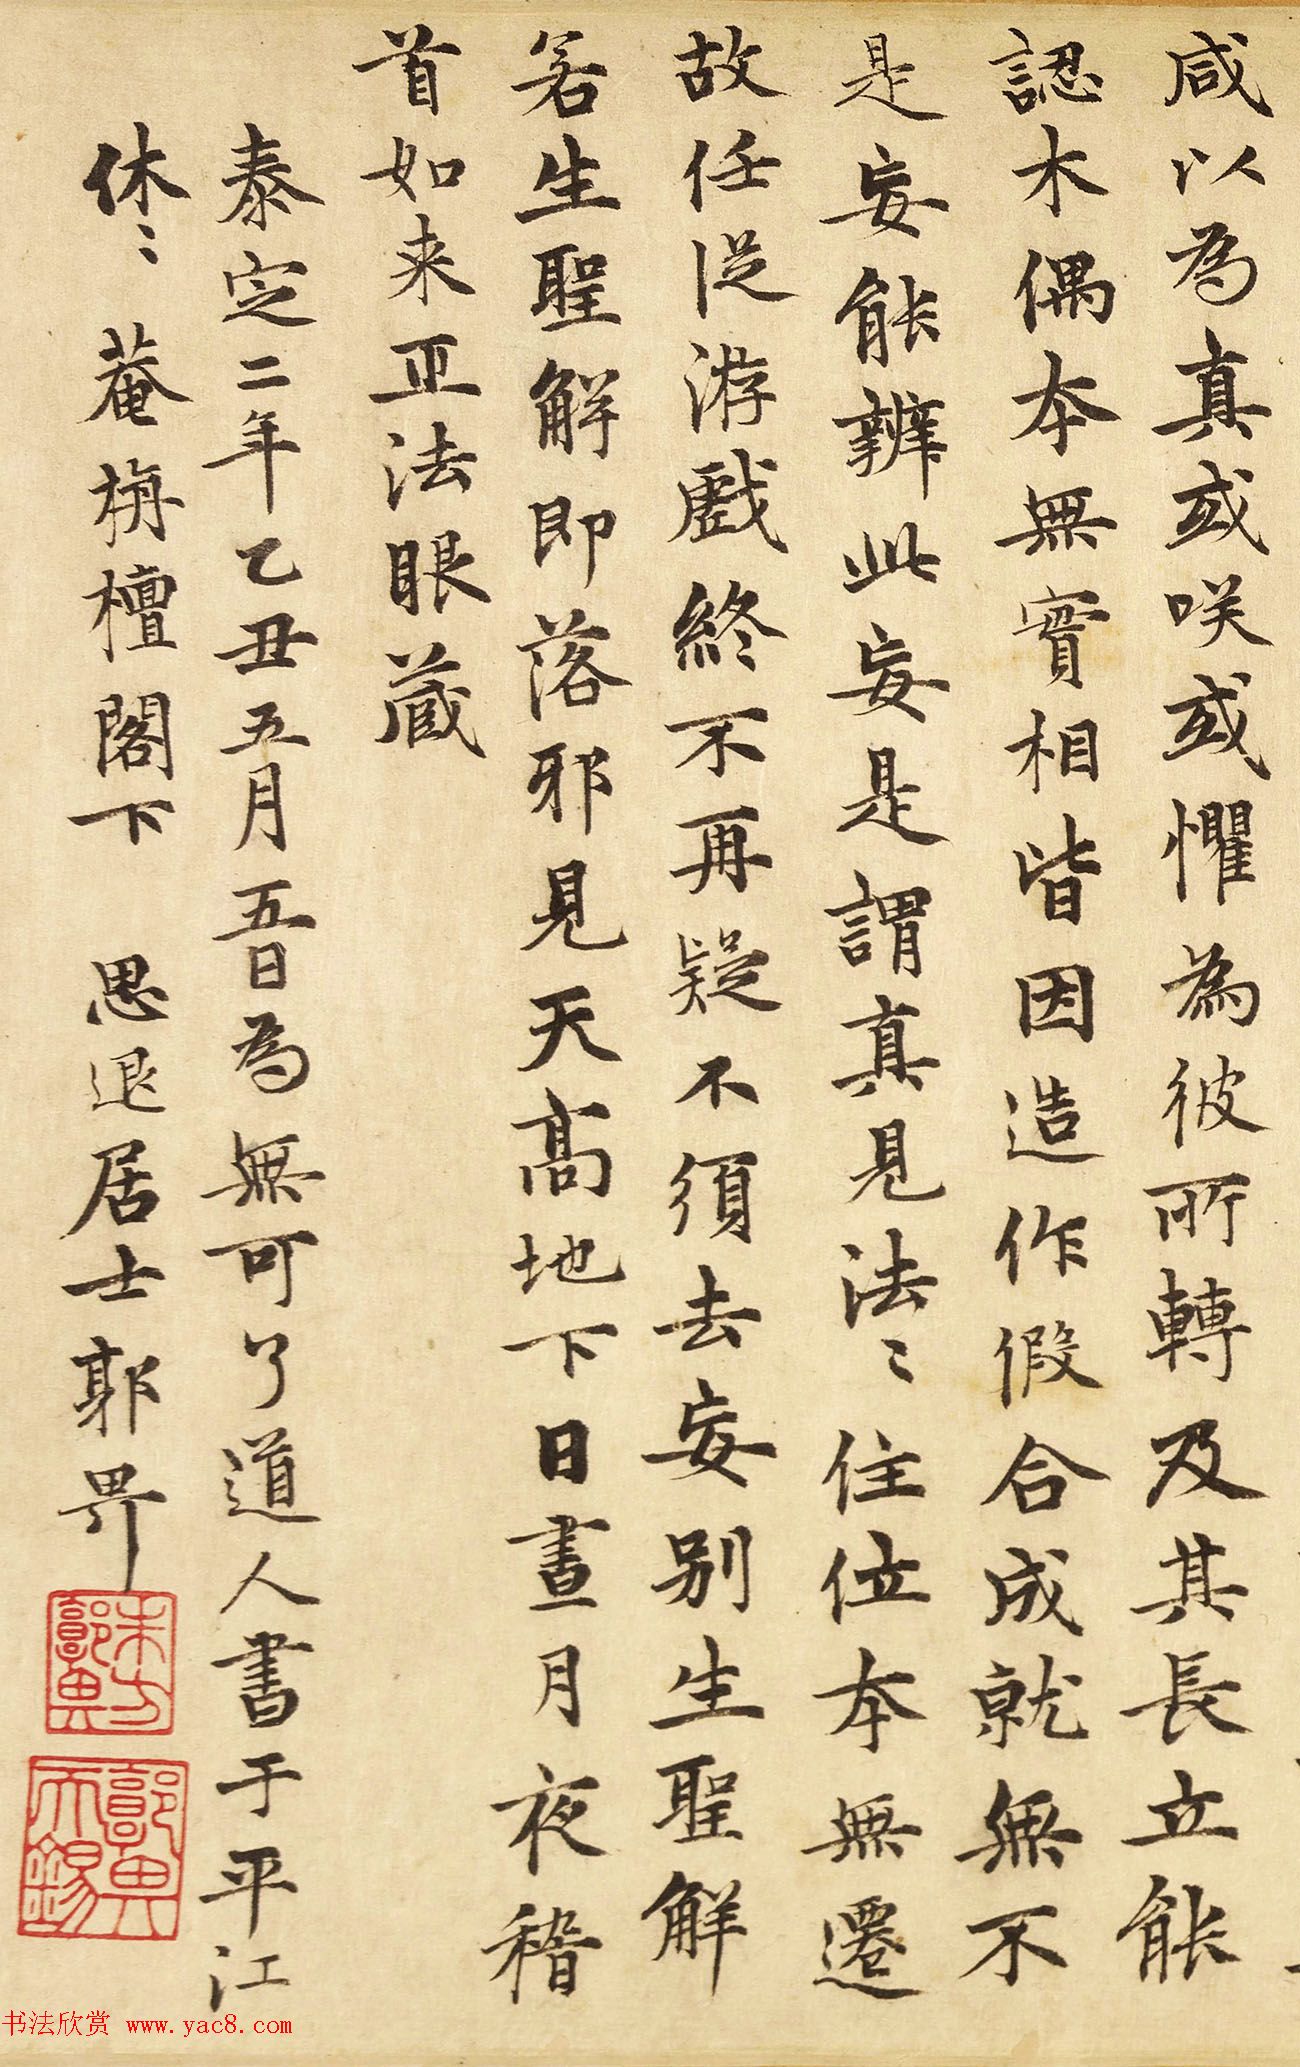 咸以為真或咲或懼為彼所轉及其長立能
認木偶本無實相皆因造作假合成就無不
是妄能辨此妄是謂真見法〻住位本無遷
故任從游戲終不再疑不須去妄別生聖解
若生聖解即落邪見天高地下日晝月夜稽
首如来正法眼藏
泰定二年乙丑五月五日為無可了道人書于平江
休〻菴栴檀閣下 思退居士郭畀
郭畀
郭畀天錫
书法欣赏 www.yac8.com